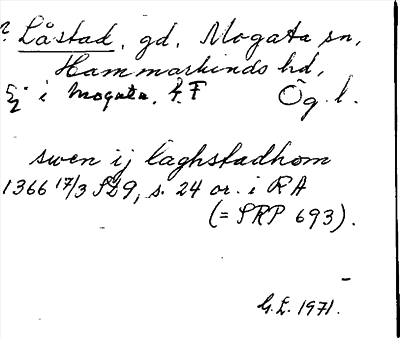 ? Låstad, gd, Mogata sn,
Hammarkinds hd,
Ej i Mogata, h. F Ög. l.
swen ij laghstadhom
1366 17/3 SD9, s. 24 or. i RA
(= SRP 693).
G.L. 1971.